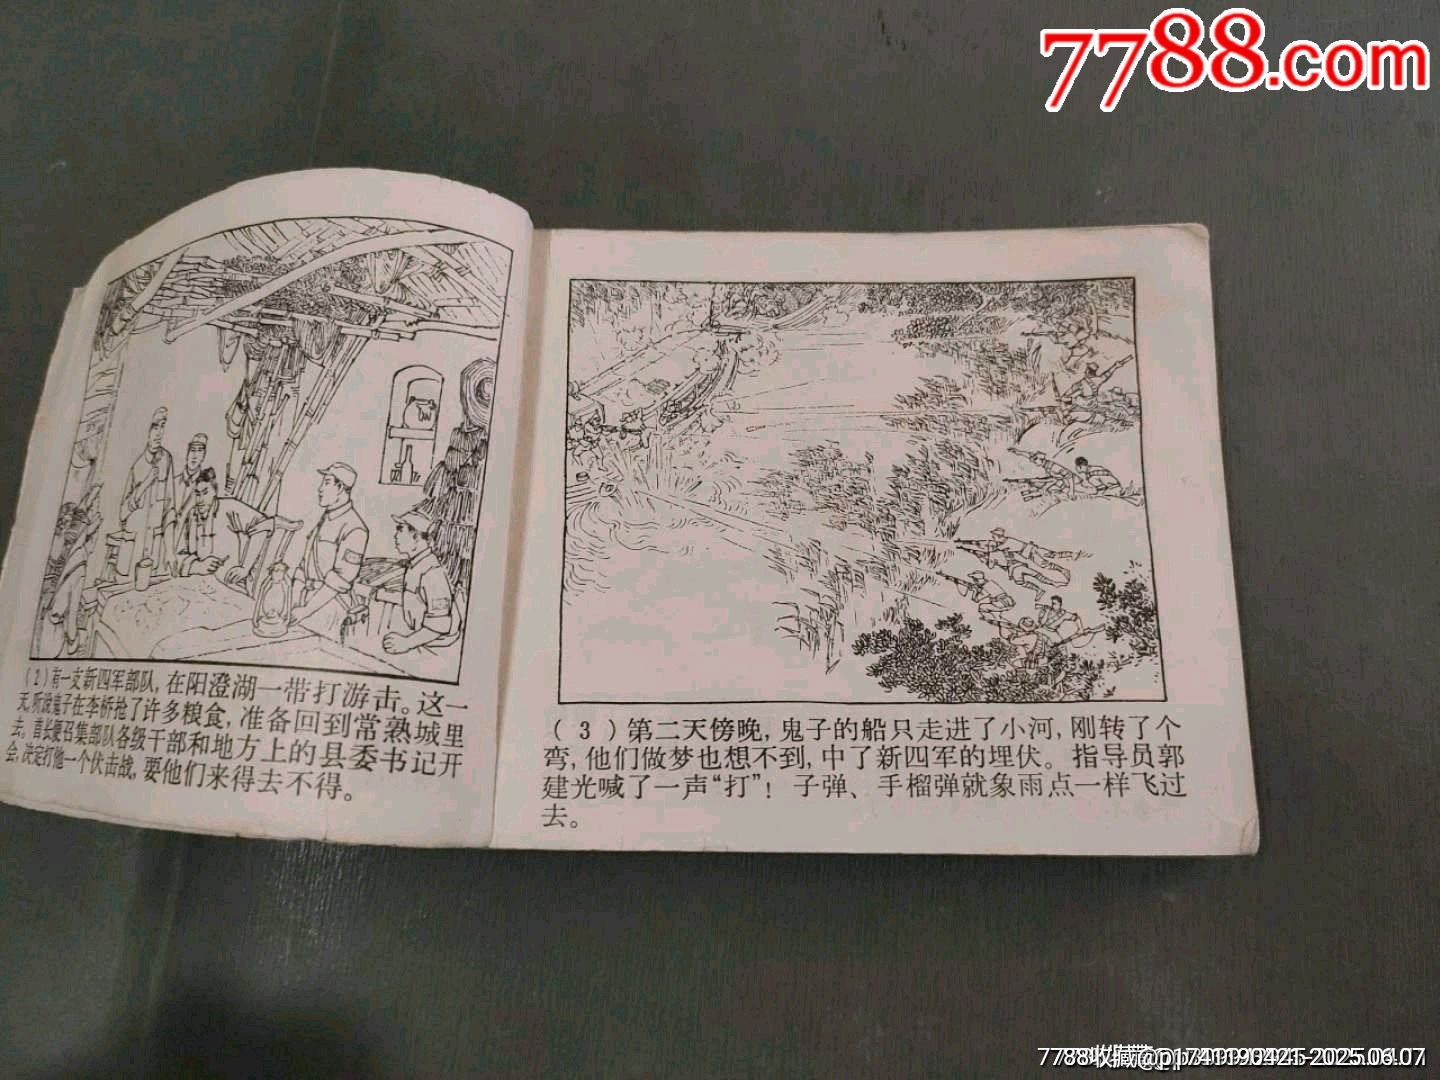 7788.com
(2)有一支新四军部队,在阳澄湖一带打游击。这一
天,听说鬼子在李桥抢了许多粮食,准备回到常熟城里
去。首长便召集部队各级干部和地方上的县委书记开
会,决定打他一个伏击战,要他们来得去不得。
(3)第二天傍晚,鬼子的船只走进了小河,刚转了个
弯,他们做梦也想不到,中了新四军的埋伏。指导员郭
建光喊了一声“打”!子弹、手榴弹就象雨点一样飞过
去。
7788收藏@p1741190421-2025.06.07